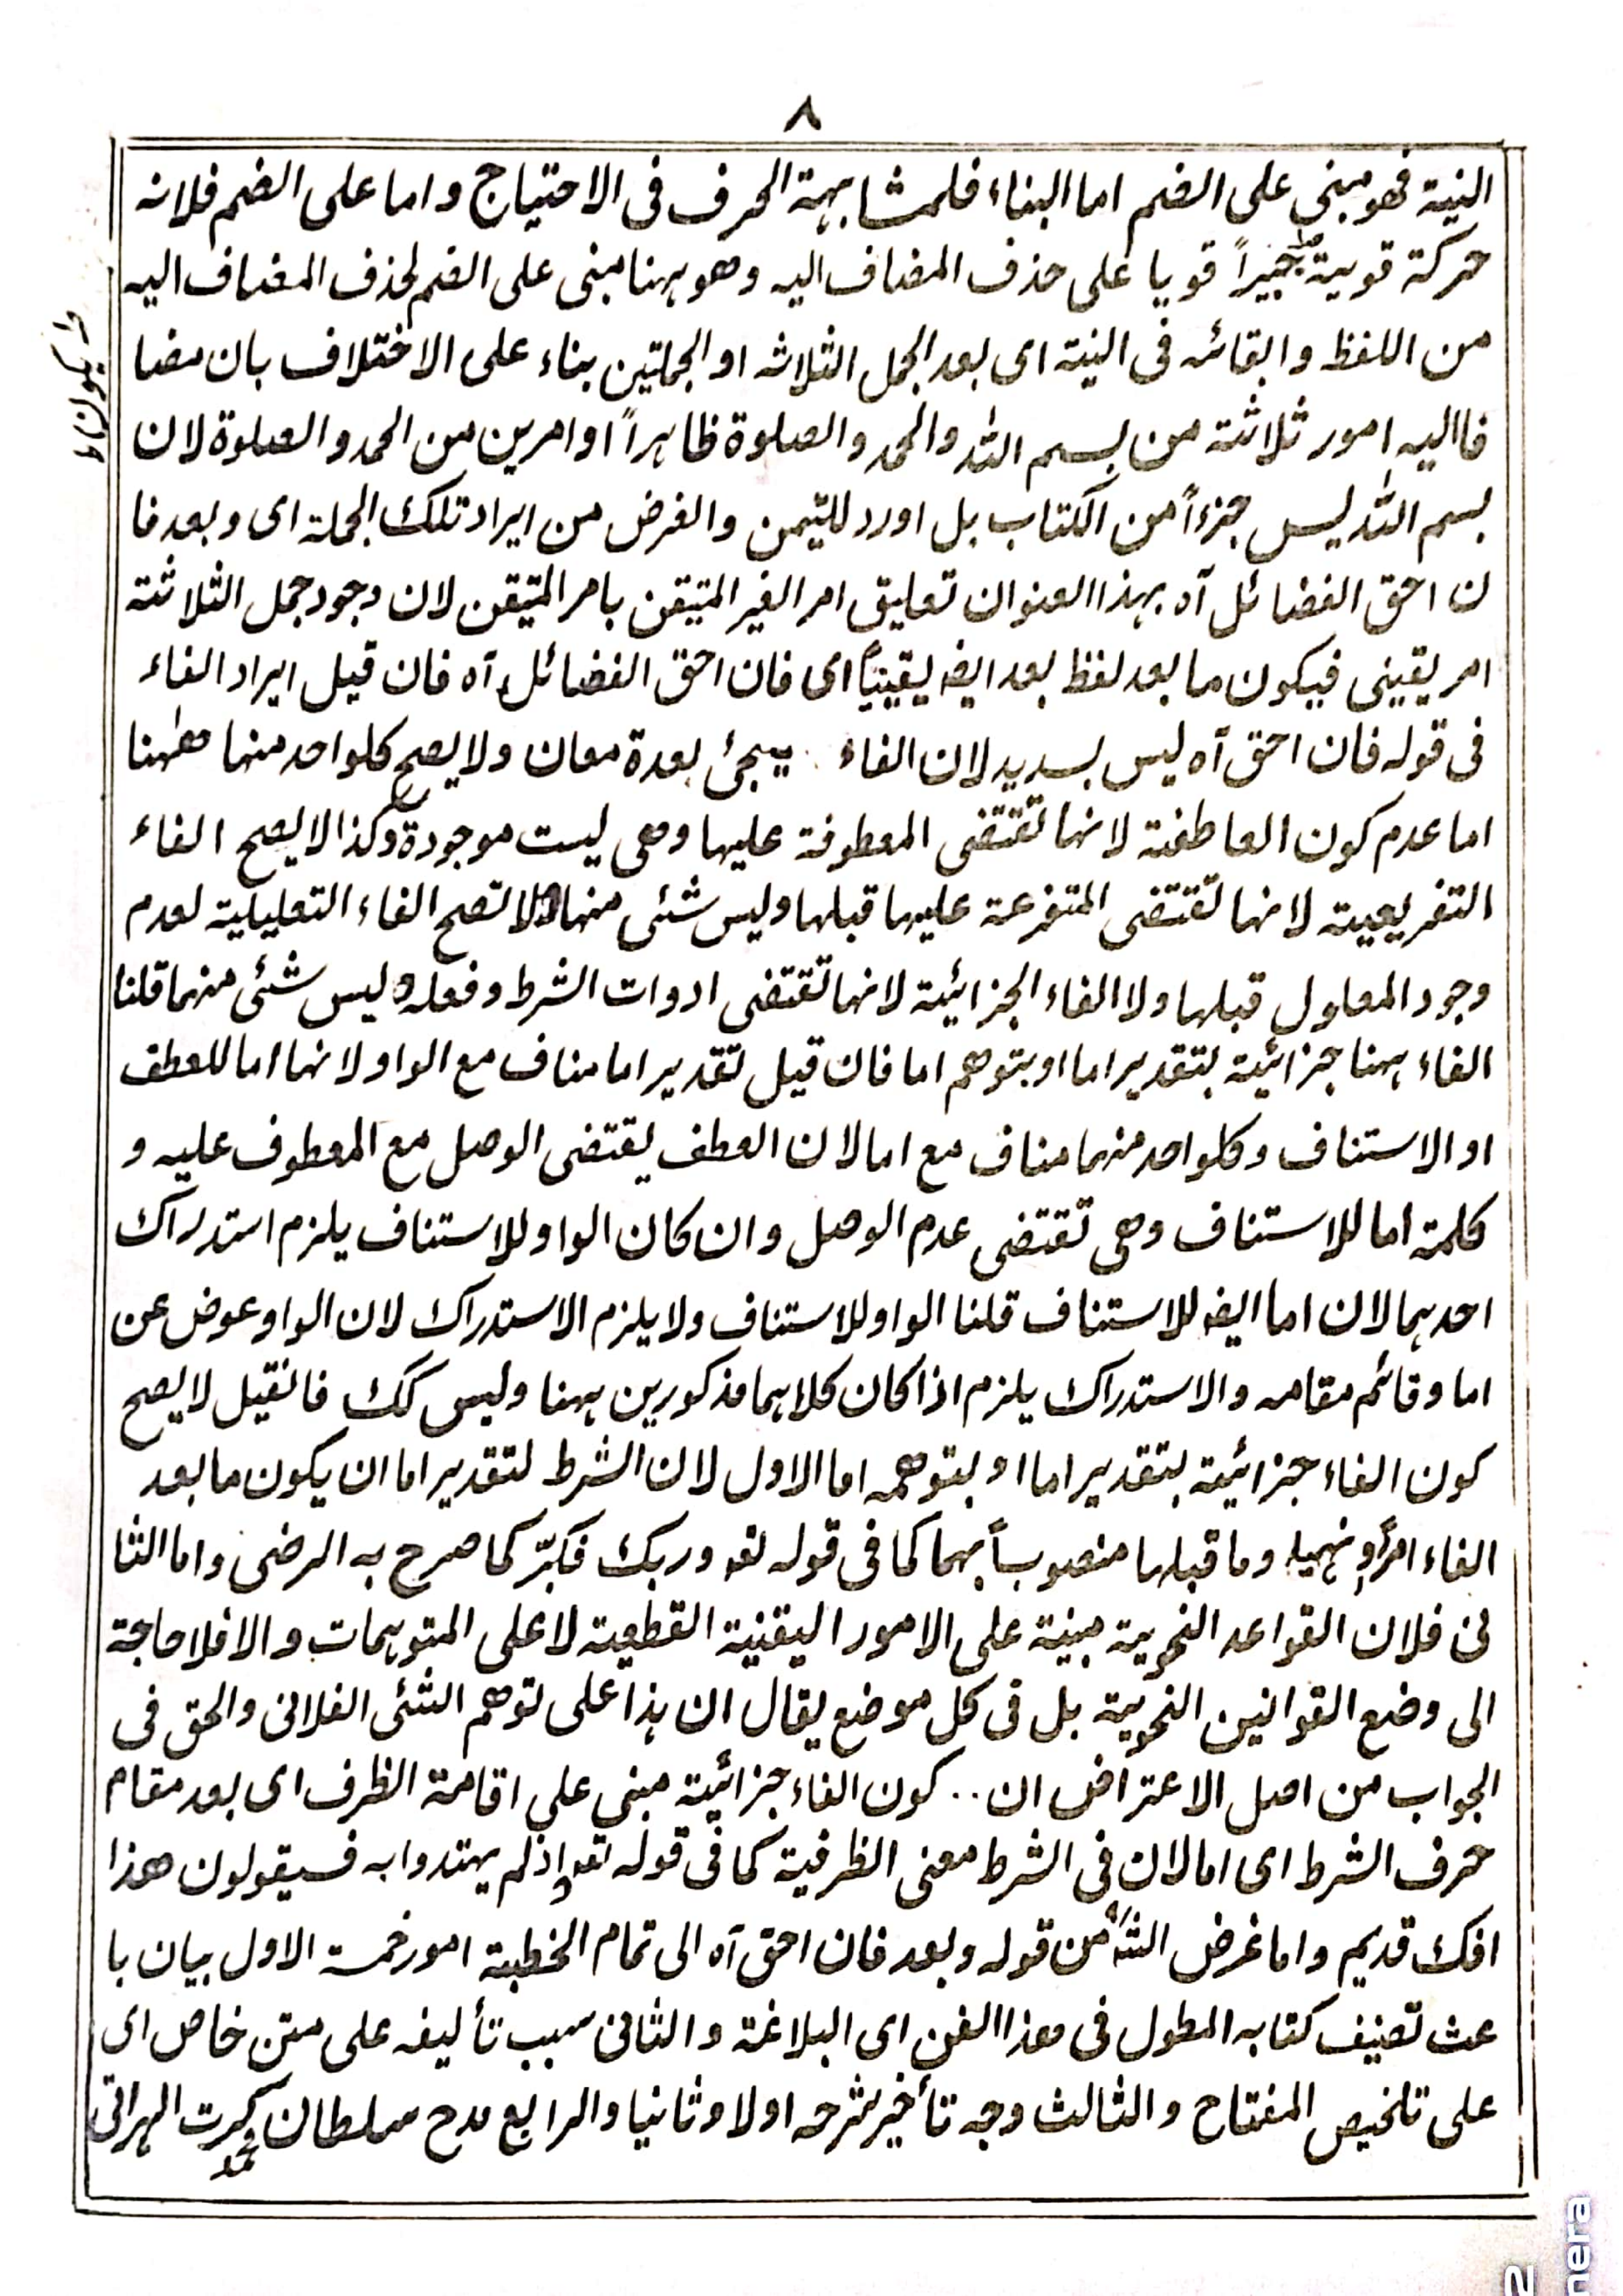 ٨
النية فهو مبنى على الضم اما البناء فلمشابهة الحرف فى الاحتياج واما على الضم فلانه
حركة قوية جبيراً قويا على حذف المضاف اليه وهو ههنا مبنى على الضم لحذف المضاف اليه
من اللفظ وابقائه فى النية اى بعد الجمل الثلاثه او الجملتين بناء على الاختلاف بان مضا
فااليه امور ثلاثة من بسم الله والحمد والصلوة ظاهراً او امرين من الحمد والصلوة لان
بسم الله ليس جزءاً من الكتاب بل اورد للتيمن والغرض من ايراد تلك الجملة اى وبعد فا
ن احق الفضائل آه بهذا العنوان تعليق امر الغير المتيقن بامر المتيقن لان وجود جمل الثلاثة
امر يقينى فيكون ما بعد لفظ بعد ايضا يقينيًا اى فان احق الفضائل آه فان قيل ايراد الفاء
فى قوله فان احق آه ليس بسديد لان الفاء يجئ بعدة معان ولا يصح كلواحد منها ههنا
اما عدم كون العاطفة لانها تقتضى المعطوفة عليها وهى ليست موجودة وكذا لا يصح الفاء
التفريعية لانها تقتضى المتفرعة عليها قبلها وليس شئى منها ولا تصح الفاء التعليلية لعدم
وجود المعلول قبلها ولا الفاء الجزائية لانها تقتضى ادوات الشرط وفعله وليس شئى منهما قلنا
الفاء ههنا جزائية بتقدير اما او بتوهم اما فان قيل تقدير اما مناف مع الواو لانها اما للعطف
او الاستناف وكلواحد منهما مناف مع اما لان العطف يقتضى الوصل مع المعطوف عليه و
كلمة اما للاستناف وهى تقتضى عدم الوصل وان كان الواو للاستناف يلزم استدراك
احدهما لان اما ايضا للاستناف قلنا الواو للاستناف ولا يلزم الاستدراك لان الواو عوض عن
اما وقائم مقامه والاستدراك يلزم اذا كان كلاهما مذكورين ههنا وليس كك فانقيل لا يصح
كون الفاء جزائية بتقدير اما او بتوهمه اما الاول لان الشرط لتقدير اما ان يكون ما بعد
الفاء امراً ونهيا وما قبلها منصوباً بهما كما فى قوله تعه وربك فكبّر كما صرح به الرضى واما الثا
نى فلان القواعد النحوية مبنية على الامور اليقنية القطعية لا على المتوهمات والا فلا حاجة
الى وضع القوانين النحوية بل فى كل موضع يقال ان هذا على توهم الشئى الفلانى والحق فى
الجواب من اصل الاعتراض ان .. كون الفاء جزائية مبنى على اقامة الظرف اى بعد مقام
حرف الشرط اى اما لان فى الشرط معنى الظرفية كما فى قوله تعه واذلم يهتدوا به فسيقولون هذا
افك قديم واما غرض الشه من قوله وبعد فان احق آه الى تمام الخطبة امور خمسة الاول بيان با
عث تصنيف كتابه المطول فى هذا الفن اى البلاغة والثانى سبب تأليفه على متن خاص اى
على تلخيص المفتاح والثالث وجه تأخير شرحه اولا وثانيا والرابع مدح سلطان محمد كرت الهراتى